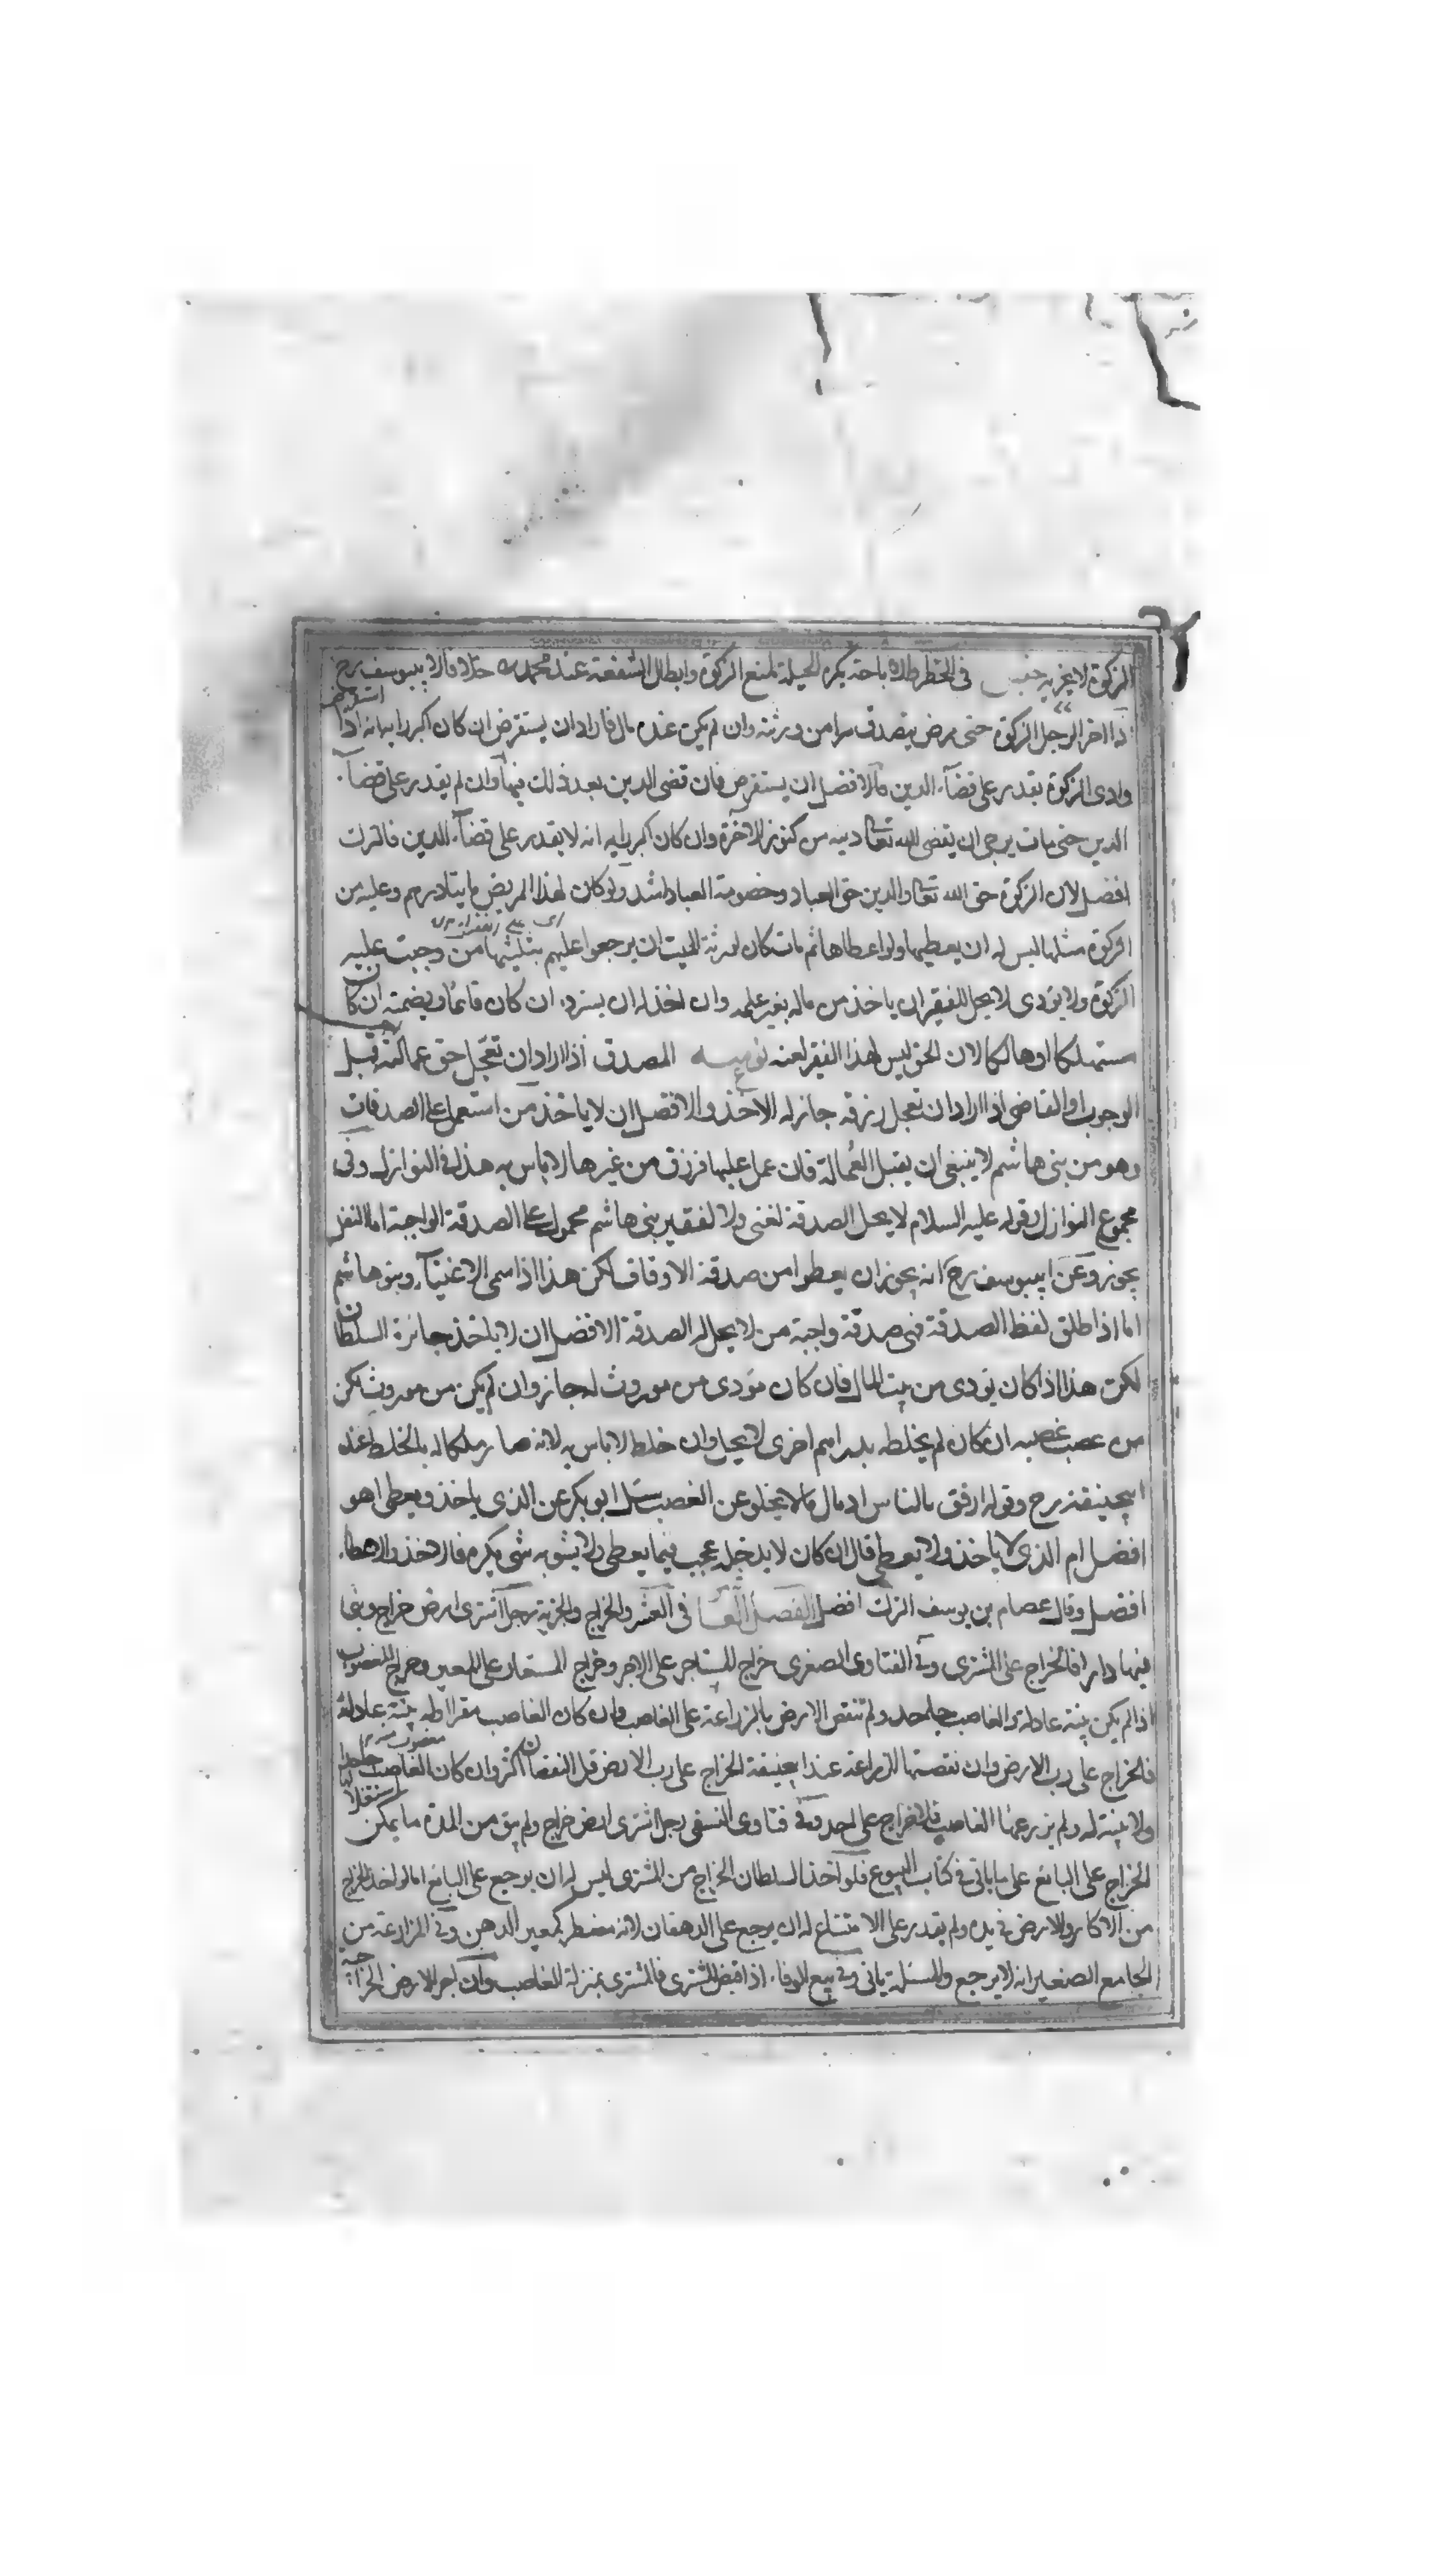 الزكوة لا يجزيه جنس في الحظر والاباحة يكره الحيلة لمنع الزكوة وابطال الشفعة عند محمد رح خلافا لابيوسف رح
اذا اخر الرجل الزكوة حتى مرض يتصدق سرا من ورثته وان لم يكن عنده مال فاراد ان يستقرض ان كان اكبر رايه انه اذا استقرض
وادى الزكوة يقدر على قضاء الدين فالافضل ان يستقرض فان قضى الدين بعد ذلك فبها وان لم يقدر على قضاء
الدين حتى مات يرجى ان يقضي الله تعالى دينه من كنوز الاخرة وان كان اكبر رايه انه لا يقدر على قضاء الدين فالترك
افضل لان الزكوة حق الله تعالى والدين حق العباد وخصومة العباد اشد ولو كان لهذا المريض مايتا درهم وعليه من
الزكوة مثلها ليس له ان يعطيها ولو اعطاها ثم مات كان لورثة الميت ان يرجعوا عليهم بثلثيها من وجبت عليه
الزكوة ولا يؤدى لا يحل للفقير ان ياخذ من ماله بغير علمه وان اخذ له ان يسترد ان كان قائما ويضمنه ان كان
مستهلكا او هالكا لان الحق ليس لهذا الفقير لعينه المصدق اذا اراد ان تعجل حق عمالته قبل
الوجوب او القاضي اذا اراد ان تعجل رزقه جاز له الاخذ والافضل ان لا ياخذ من استعمل على الصدقات
وهو من بني هاشم لا ينبغي ان يقبل العمالة فان عمل عليها فرزق من غيرها لا باس به هذا في النوازل وفي
مجموع النوازل قوله عليه السلام لا يحل الصدقة لغني ولا لفقير بني هاشم محمول على الصدقة الواجبة اما النفل
يجوز وعن ابيوسف رح انه يجوز ان يعطوا من صدقة الاوقاف لكن هذا اذا سمى الاغنياء وبنو هاشم
اما اذا اطلق لفظ الصدقة فهي صدقة واجبة من لا يحل له الصدقة الافضل ان لا ياخذ جائزة السلطان
لكن هذا اذا كان يؤدى من بيت المال فان كان يؤدى من موروث له جاز وان لم يكن من موروث لكن
من غصب غصبه ان كان لم يخلطه بدراهم اخرى لا يحل وان خلط لا باس به لانه صار ملكا له بالخلط عند
ابيحنيفة رح وقوله ارفق بالناس اذ مال ما لا يخلو عن الغصب سئل ابو بكر عن الذي ياخذ ويعطي اهو
افضل ام الذي لا ياخذ ولا يعطي قال ان كان لا يدخله عجب فيما يعطي ولا يشوبه شي يكره فالاخذ والاعطاء
افضل وقال عصام بن يوسف الترك افضل الفصل في العشر والخراج والجزية رجل اشترى ارض خراج وبنى
فيها دارا فالخراج على المشتري وفي الفتاوى الصغرى خراج المستاجر على الاجر وخراج المستعار على المعير وخراج المغصوب
اذا لم يكن بينة عادلة والغاصب جاحد ولم تنقص الارض بالزراعة على الغاصب وان كان الغاصب مقرا او له بينة عادلة
فالخراج على رب الارض وان نقصتها الزراعة عند ابيحنيفة الخراج على رب الارض قل النقصان او كثر وان كان الغاصب جاحدا
ولا بينة له ولم يزرعها الغاصب فلا خراج على احد وفي فتاوى النسفي رجل اشترى ارض خراج ولم يبق من المدة ما يمكن استغلالها
الخراج على البائع على ما ياتي في كتاب البيوع فلو اخذ السلطان الخراج من المشتري ليس له ان يرجع على البائع اما لو اخذ الخراج
من الاكار والارض في يده ولم يقدر على الامتناع له ان يرجع على الدهقان لانه مضطر كمعير الرهن وفي المزارعة من
الجامع الصغير انه لا يرجع والمسئلة ياتي وفي بيع الوفاء اذا قبض المشتري فالمشتري بمنزلة الغاصب وان اجر الارض الخراجية